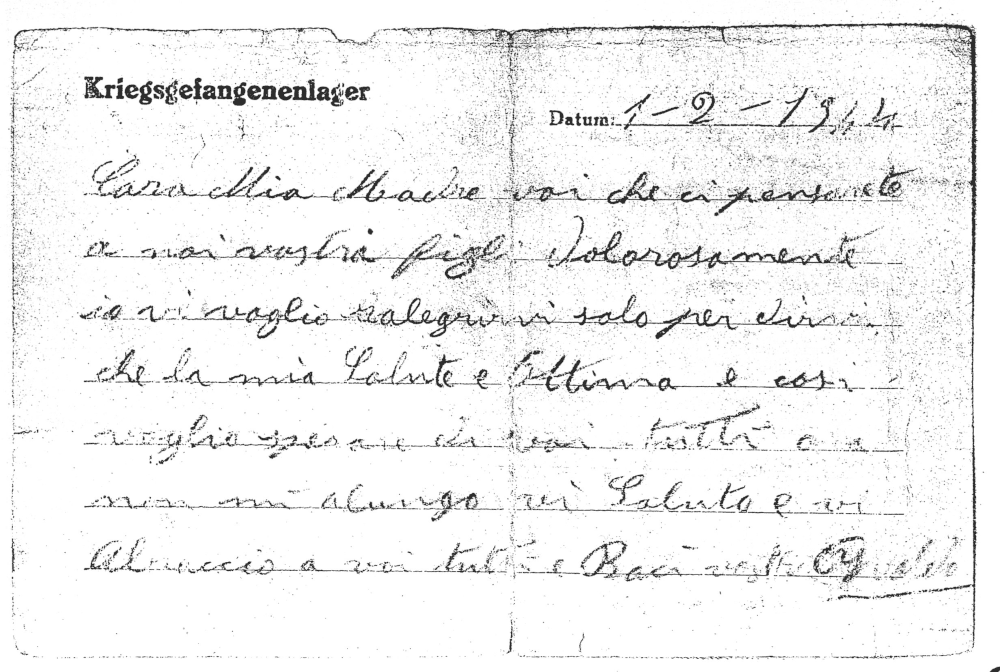 Kriegsgefangenenlager
Datum: 1-2-1944
Cara Mia Madre voi che ci pensarete
a noi vostri figli Dolorosamente
io vi voglio ralegrirvi solo per dirvi
che la mia Salute e Ottima e cosi
voglio sperare di voi tutti
non mi alungo vi Saluto e vi
Abraccio a voi tutti e Baci vostro